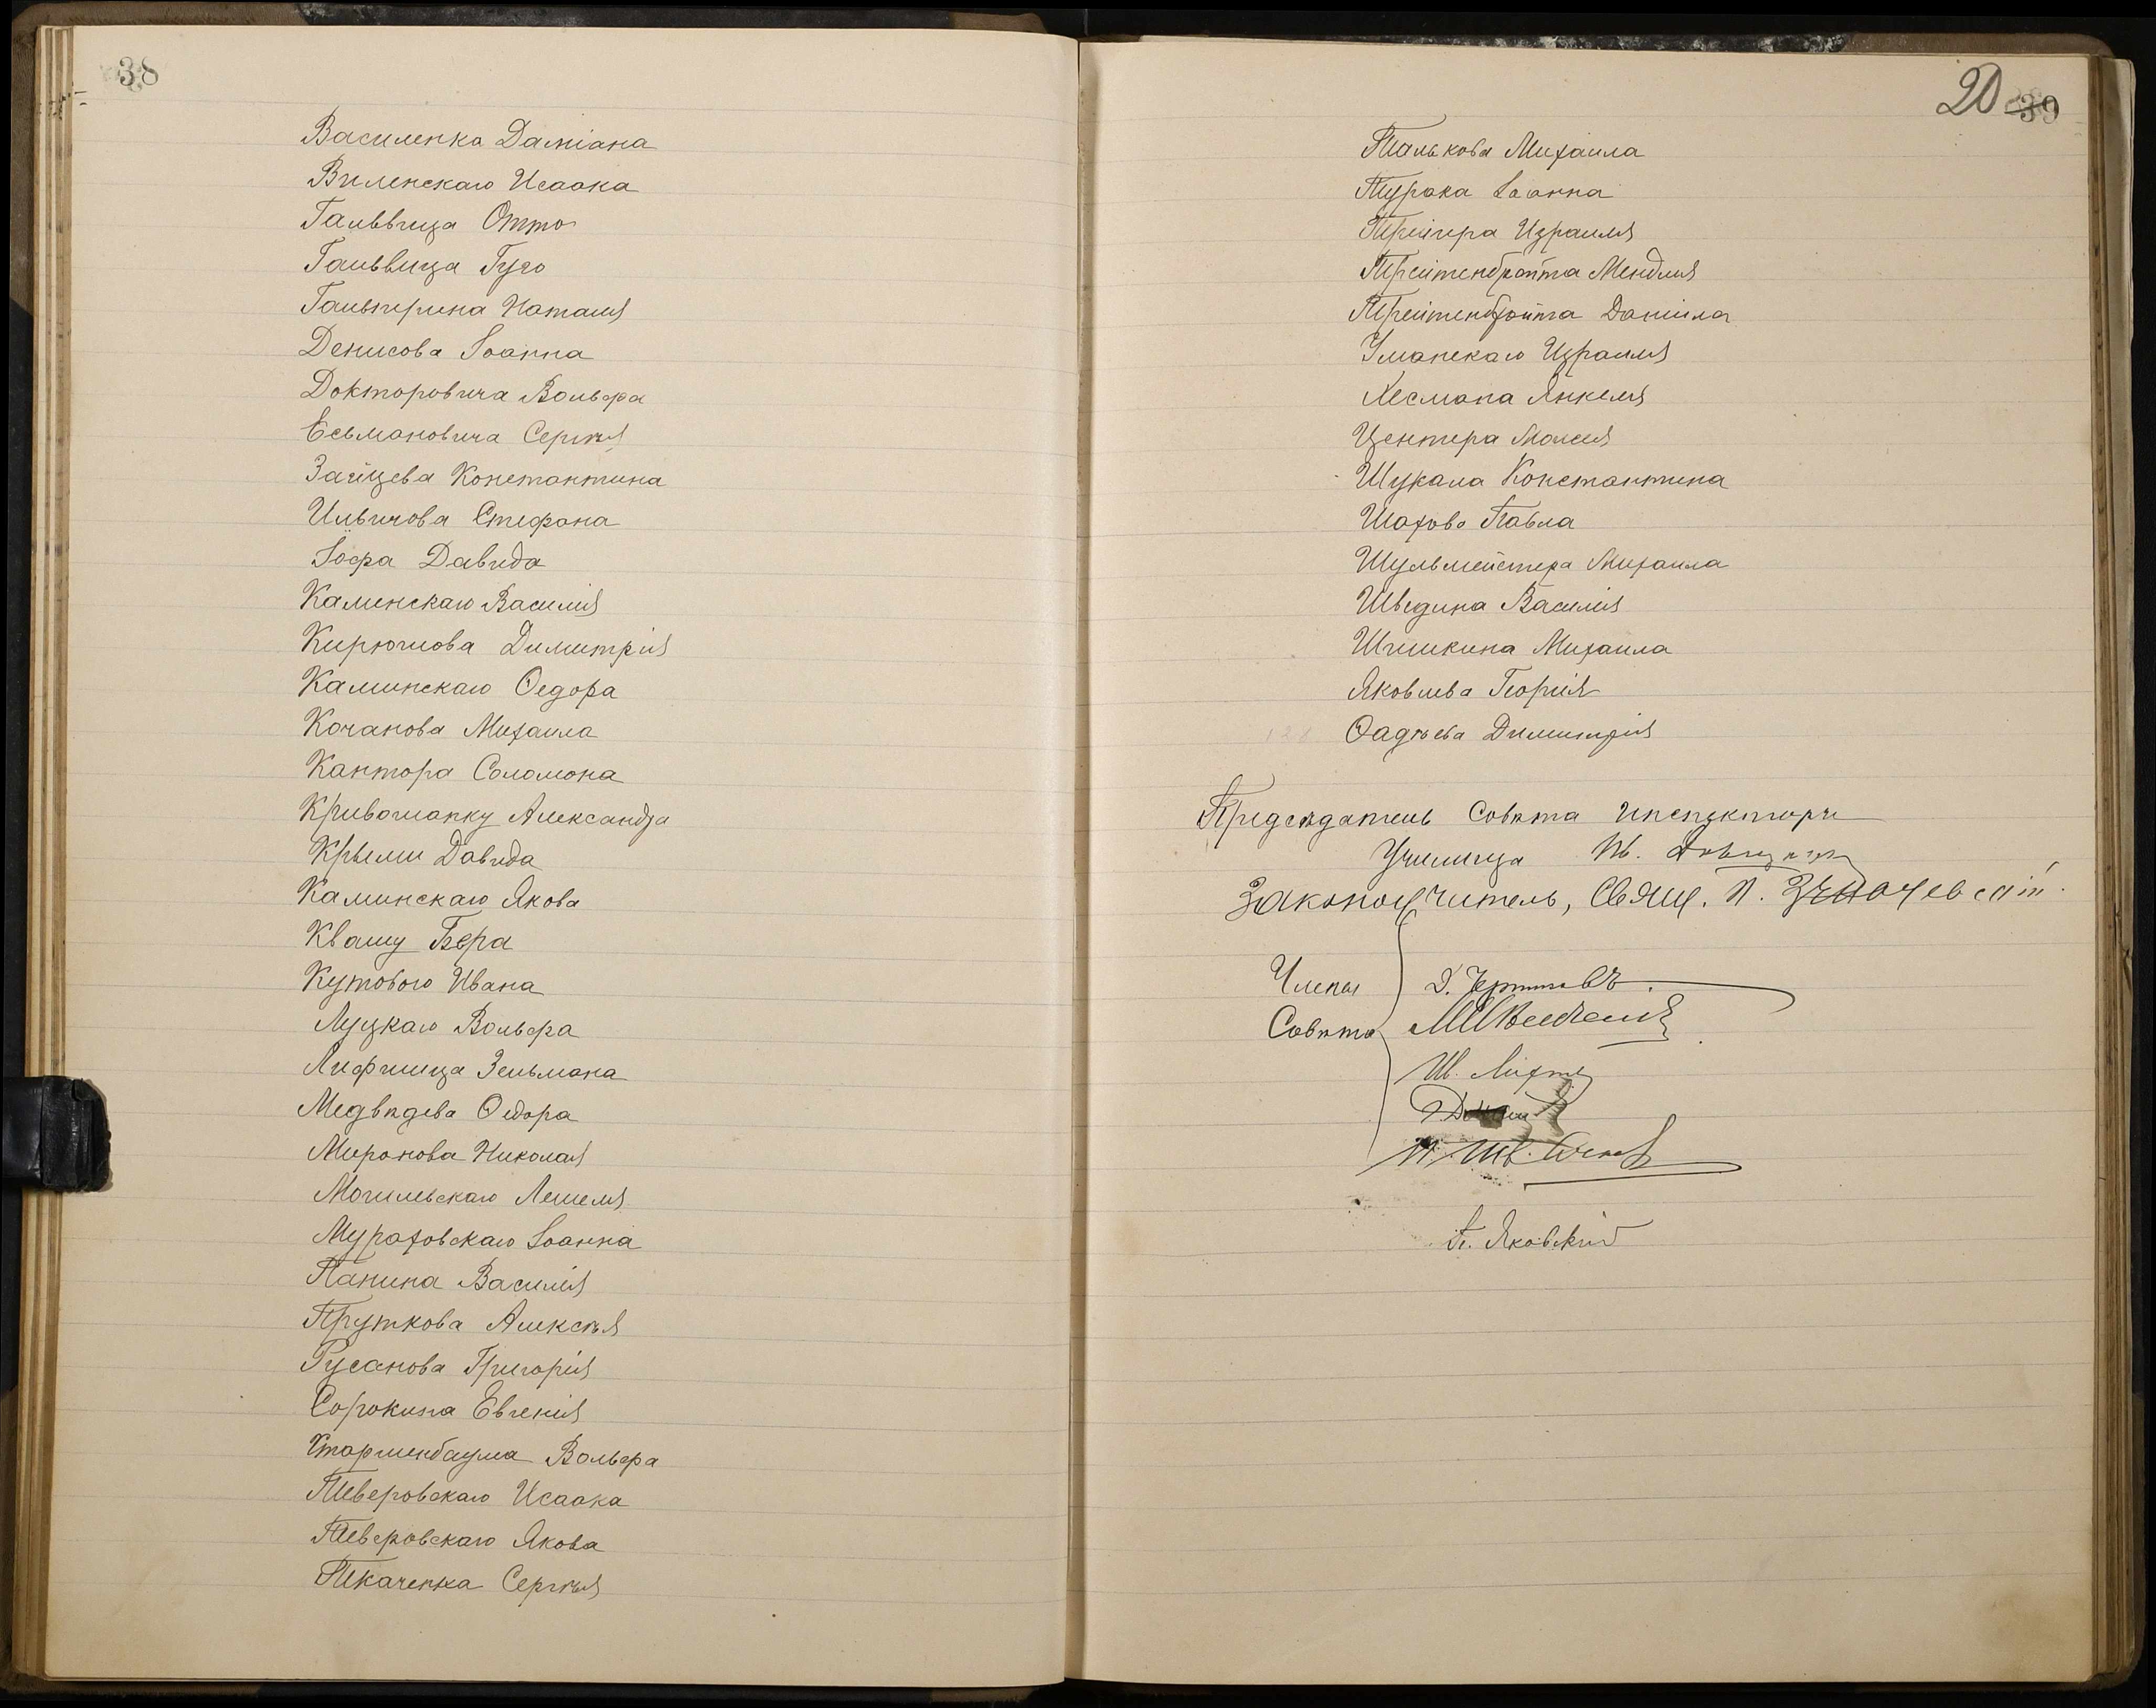 38
Василенка Даміана
Виленскаго Исаака
Гальвица Отто
Гальвица Гуго
Гальперина Наталя
Денисова Іоанна
Докторовича Вольфа
Есьмановича Сергѣя
Зайцева Константина
Ильичова Стефана
Іофа Давида
Каменскаго Василія
Кирюшова Димитрія
Каминскаго Ѳедора
Кочанова Михаила
Кантора Соломона
Кривошапку Александра
Крыши Давида
Каминскаго Якова
Квашу Бера
Кутового Ивана
Луцкаго Вольфа
Лифшица Зельмана
Медвѣдева Ѳедора
Миронова Николая
Могилевскаго Лейбеля
Мураховскаго Іоанна
Панина Василія
Пруткова Алексѣя
Русанова Григорія
Сорокина Евгенія
Вольфа
Тверовскаго Исаака
Тверовскаго Якова
Ткаченка Сергѣя
20 39
Талькова Михаила
Турака Іоанна
Трейгера Израиля
Трейтенбройта Менделя
Трейтенбройта Даніила
Уманскаго Израиля
Хесмана Янкеля
Центера Моисея
Шукала Константина
Шахова Павла
Шульмейстера Михаила
Шведина Василія
Шишкина Михаила
Яковлева Георгія
Ѳадѣева Димитрія
Предсѣдатель Совѣта Инспекторъ
Училища
Законоучитель, Свящ. П.
Члены
Совѣта
П. Яковскій